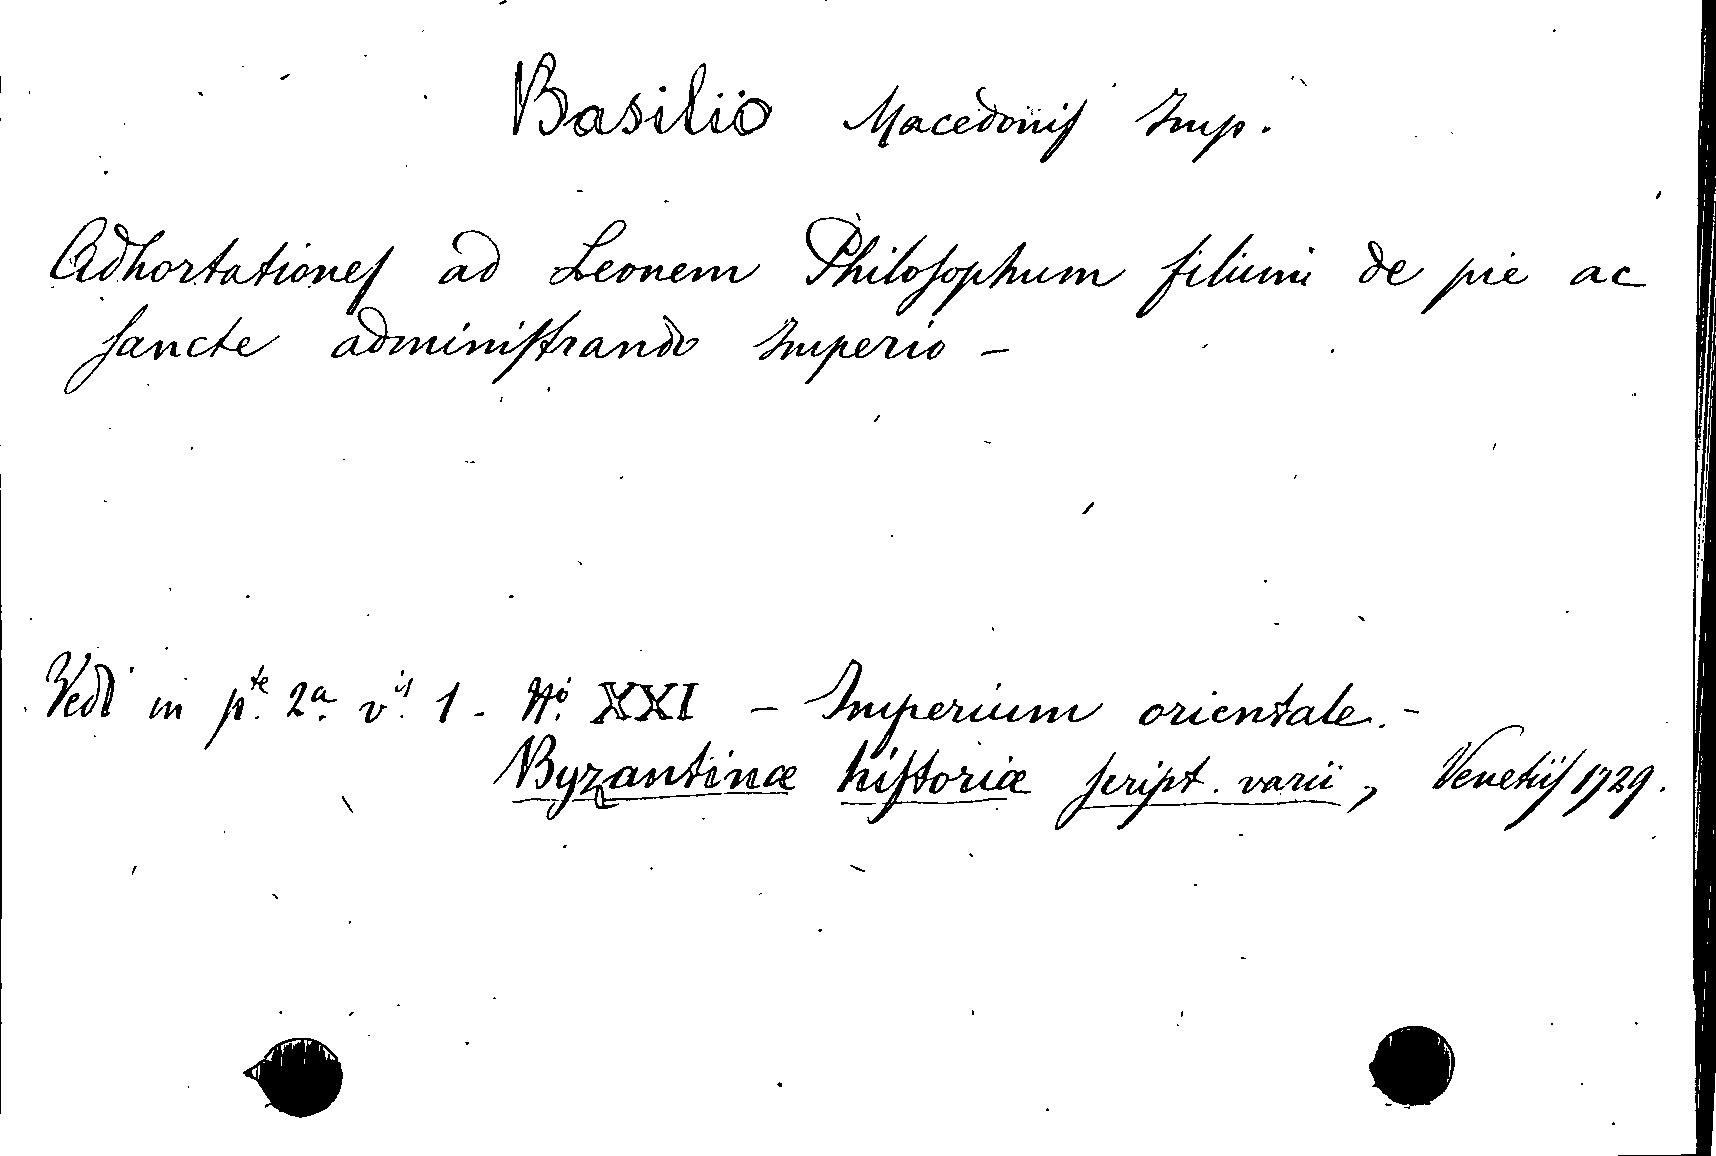 Basilio Macedonis Imp.
Adhortationes ad Leonem Philosophum filium de pie ac
sancte administrando Imperio -
Vedi in p.te 2a. v.is 1 - No. XXI - Imperium orientale. -
Byzantinæ historiæ script. varii, Venetiis 1729.